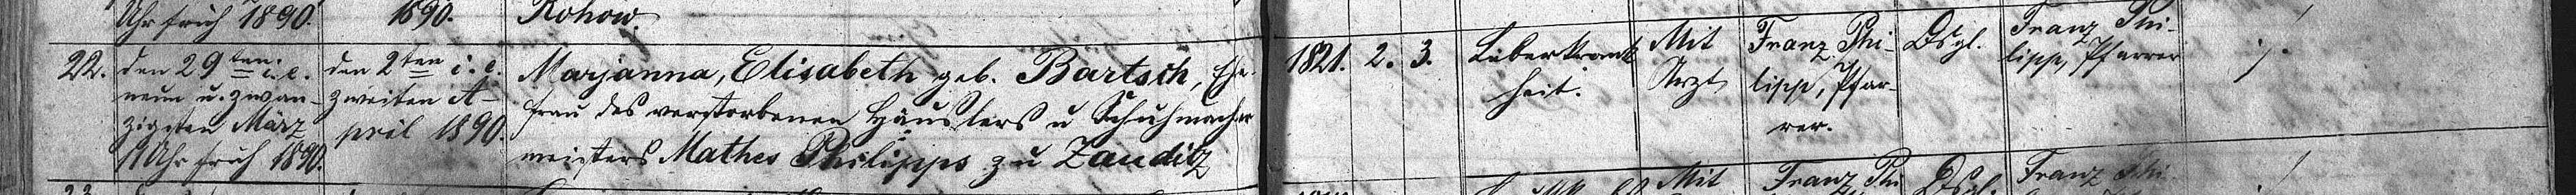 Uhr früh 1890.
1890.
Rohow.
22.
den 29ten i. e.
neun u. zwan-
zigsten März
11 Uhr früh 1890.
den 2ten i. e.
zweiten A-
pril 1890
Marjanna, Elisabeth geb. Bartsch, Ehe-
frau des verstorbenen Häuslers u Schuhmacher
meisters Mathes Philipps zu Zauditz
1821. 2. 3.
Leberkrank
heit.
Mit
Arzt
Franz Phi-
lipp, Pfar-
rer.
Dsgl.
Franz Phi-
lipp, Pfarrer
Mit
Franz Phi
Dsgl.
Franz Phi-